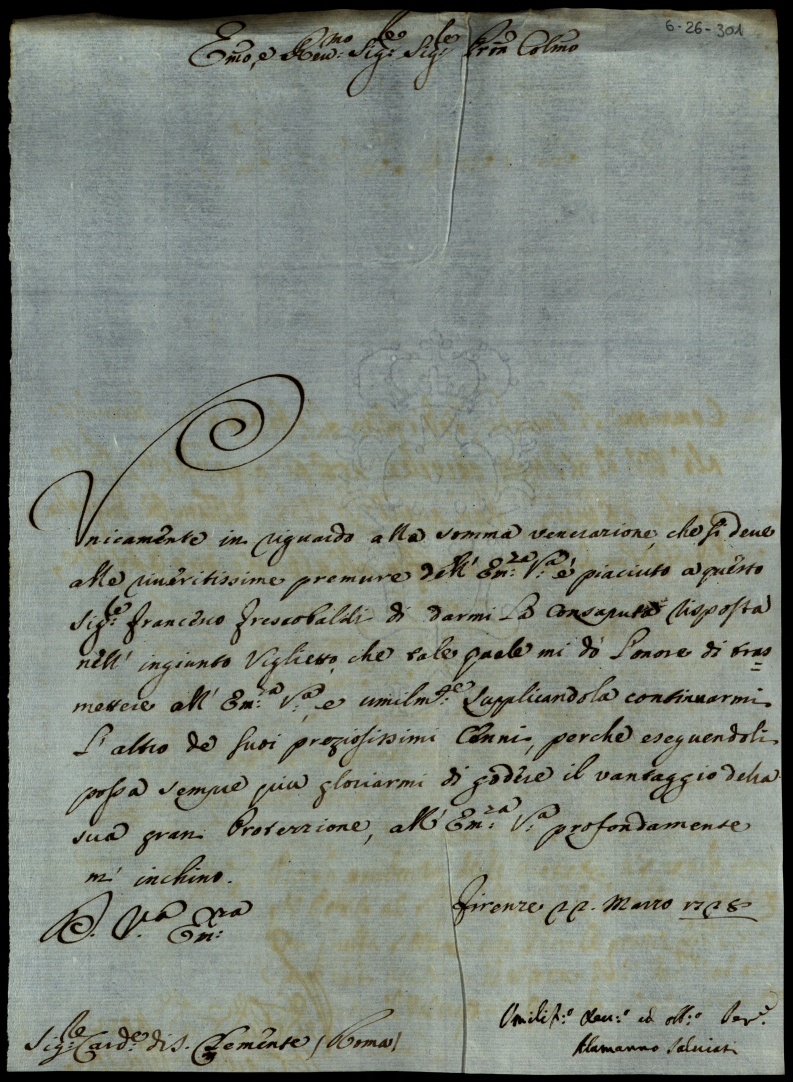 6-26-301
Emo, e Revmo: Sigre Sigre Prōn Colmo
Unicamente in riguardo alla somma venerazione, che si deve
alle riveritissime premure dell' Em:za V:a é piaciuto a questo
Sigre: Francesco Frescobaldi di darmi la consaputa risposta
nell' ingiunto Viglietto, che tale quale mi dò l'onore di tras=
mettere all' Em:za V:a, e umilmte: supplicandola continuarmi
l'altro de suoi preziosissimi Cenni, perche eseguendoli
possa sempre più gloriarmi di godere il vantaggio della
sua gran Protezzione, all' Em:za V:a profondamente
m' inchino.
D. V:a Em:za
Firenze 22. Marzo 1728
Sigre: Card:e di S. Clemente /Roma/
Umiliss:o Dev:o ed obb:o Ser:e
Alamanno Salviati